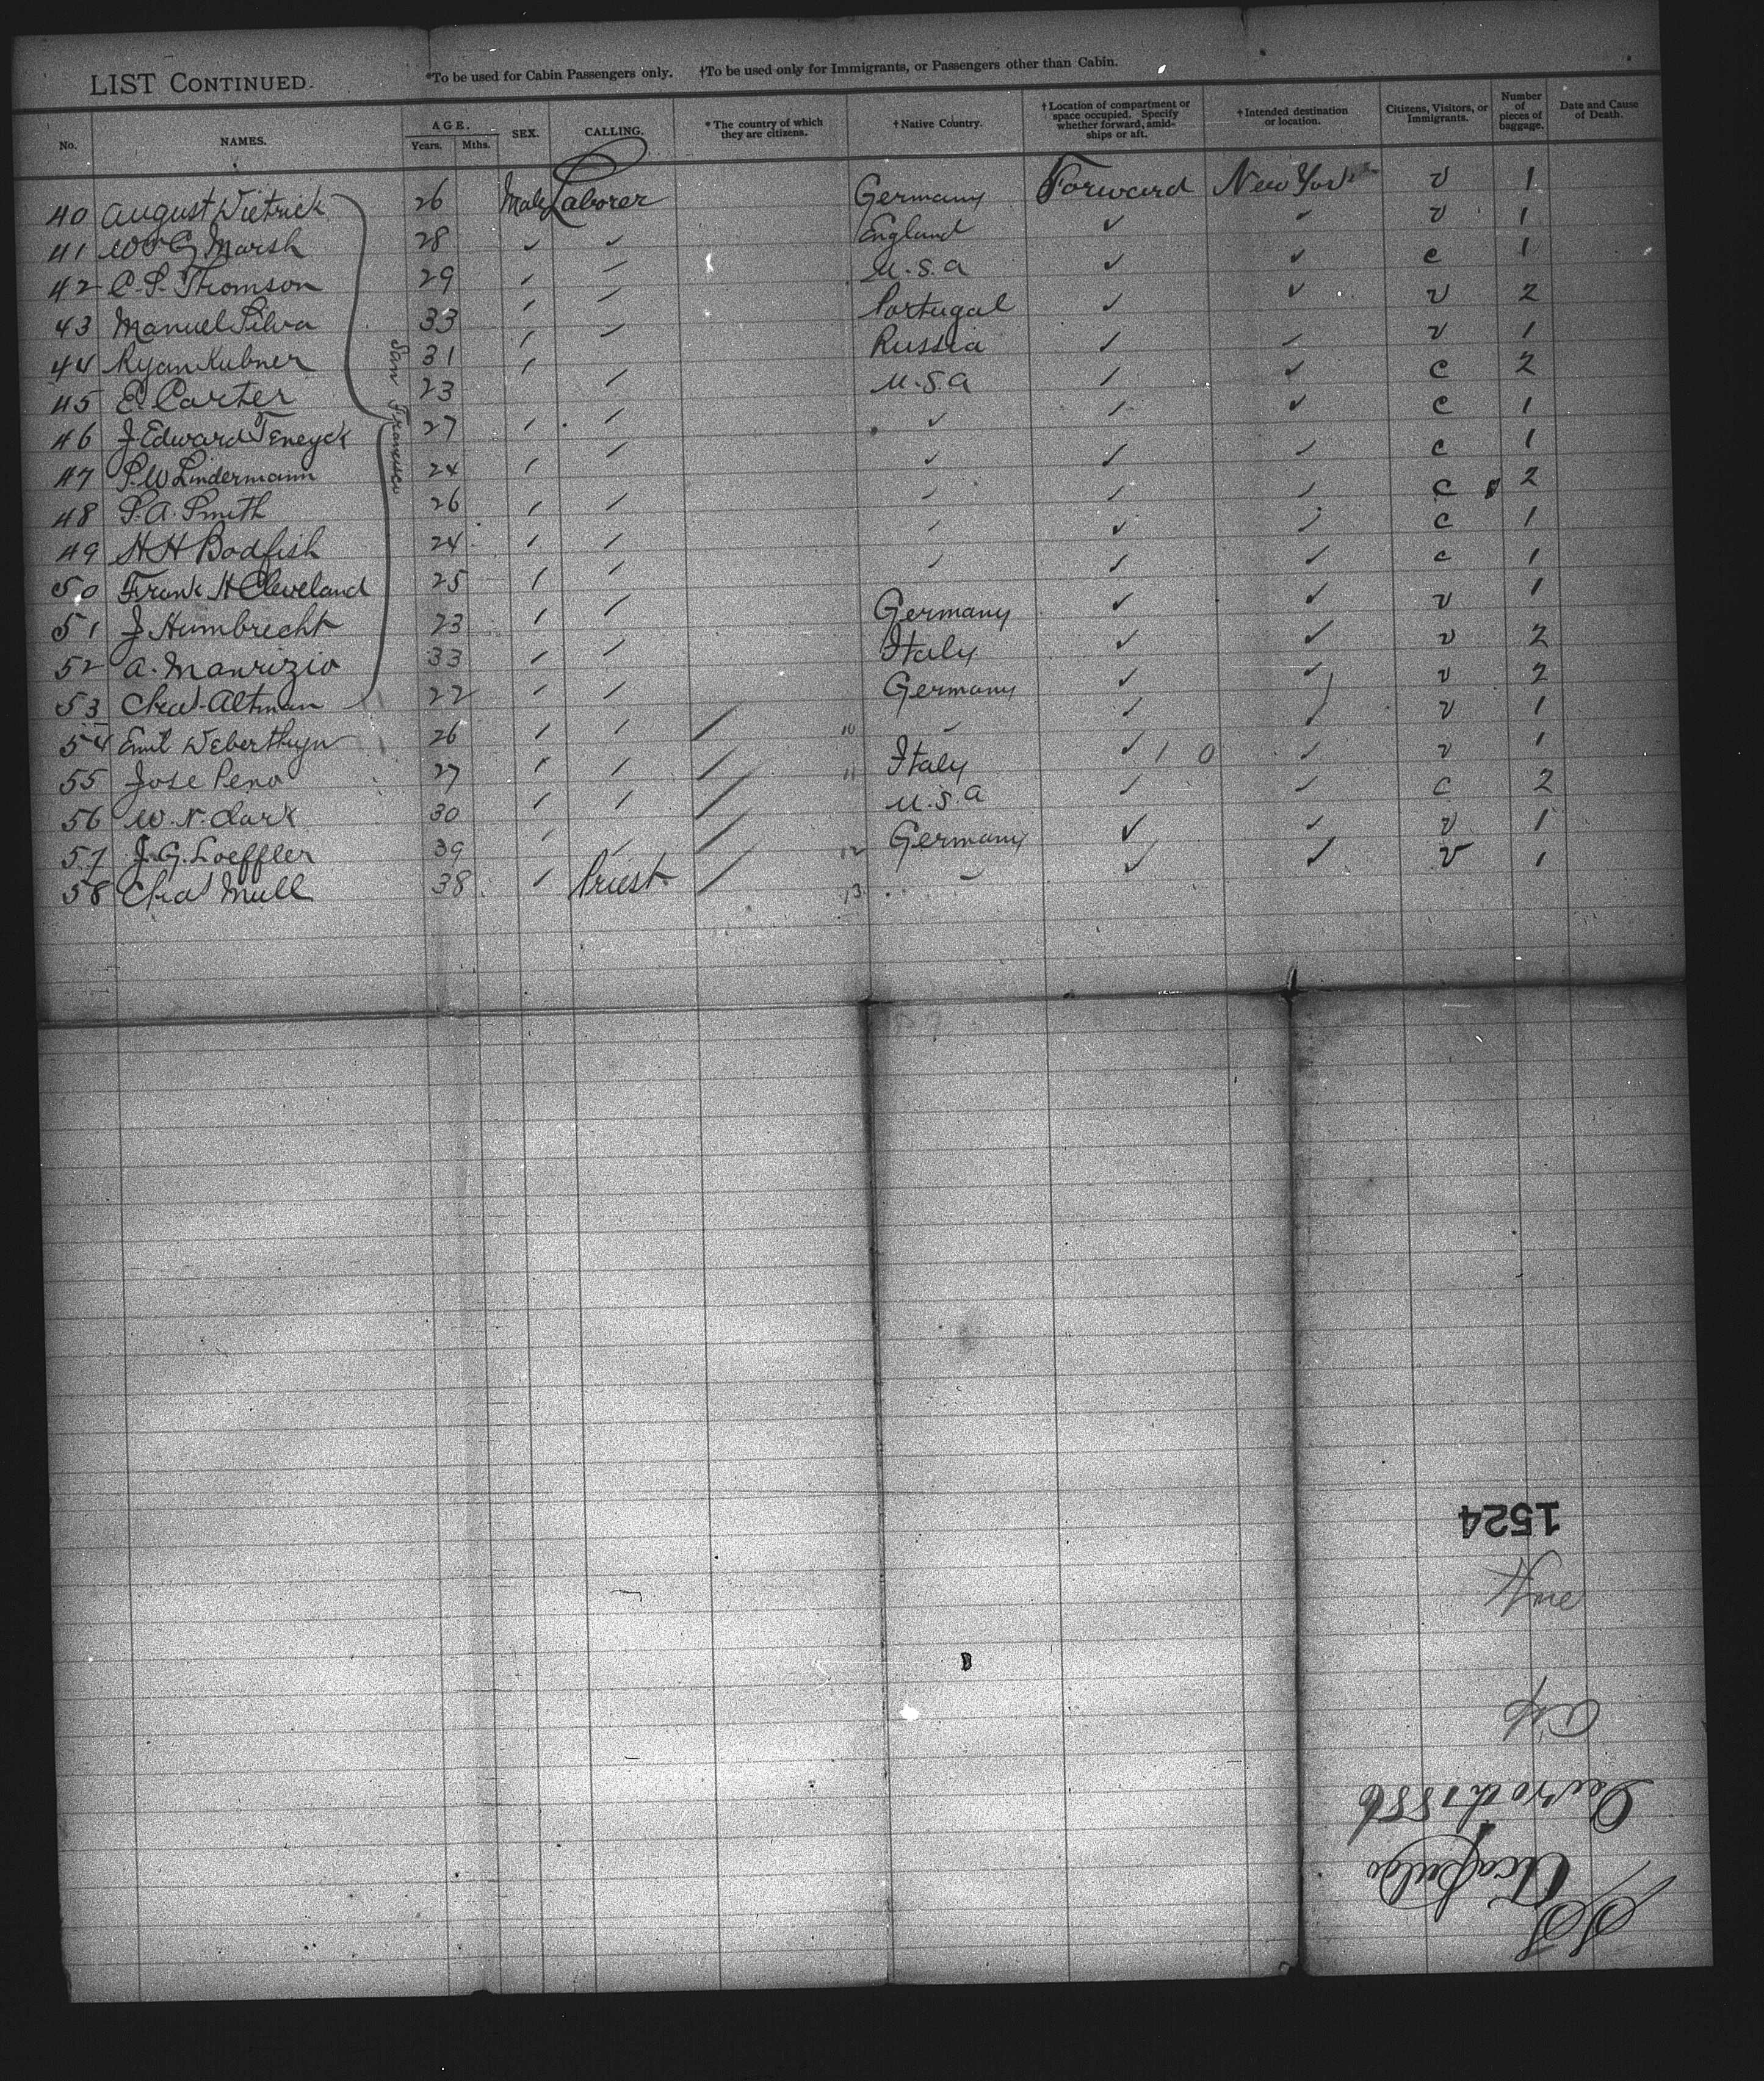 LIST CONTINUED. *To be used for Cabin Passengers only. †To be used only for Immigrants, or Passengers other than Cabin.
No. NAMES. AGE. Years. Mths. SEX. CALLING. * The country of which they are citizens. † Native Country. † Location of compartment or space occupied. Specify whether forward, amidships or aft. † Intended destination or location. Citizens, Visitors, or Immigrants. Number of pieces of baggage. Date and Cause of Death.
40 August Dietrick 26 Male Laborer Germany Forward New York v 1
41 Marsh 28 ✓ ✓ England ✓ ✓ v 1
42 C. S. Thomson 29 ✓ ✓ U.S.A ✓ ✓ c 1
43 Manuel Silva 33 ✓ ✓ Portugal ✓ ✓ v 2
44 Ryan Kubner 31 ✓ ✓ Russia ✓ ✓ v 1
45 E. Carter 23 ✓ ✓ U.S.A ✓ ✓ c 2
46 J Edward Teneyck 27 ✓ ✓ ✓ ✓ ✓ c 1
47 P. W Lindermann 24 ✓ ✓ ✓ ✓ ✓ c 1
48 S. A. Smith 26 ✓ ✓ ✓ ✓ ✓ c 2
49 H H Bodfish 24 ✓ ✓ ✓ ✓ ✓ c 1
50 Frank H Cleveland 25 ✓ ✓ ✓ ✓ ✓ c 1
51 J Humbrecht 23 ✓ ✓ Germany ✓ ✓ v 1
52 A. Manrizio 33 ✓ ✓ Italy ✓ ✓ v 2
53 Chas. Altman 22 ✓ ✓ Germany ✓ ✓ v 2
San Francisco
54 Emil Weberthyn 26 ✓ ✓ / 10 ✓ ✓ ✓ v 1
55 Jose Peno 27 ✓ ✓ / 11 Italy ✓ 10 ✓ v 1
56 W. N. Clark 30 ✓ ✓ / U.S.A ✓ ✓ c 2
57 J. G. Loeffler 39 ✓ ✓ / 12 Germany ✓ ✓ v 1
58 Chas Mull 38 ✓ Priest / 13 ✓ ✓ ✓ v 1
SS
Acapulco
1886
1524